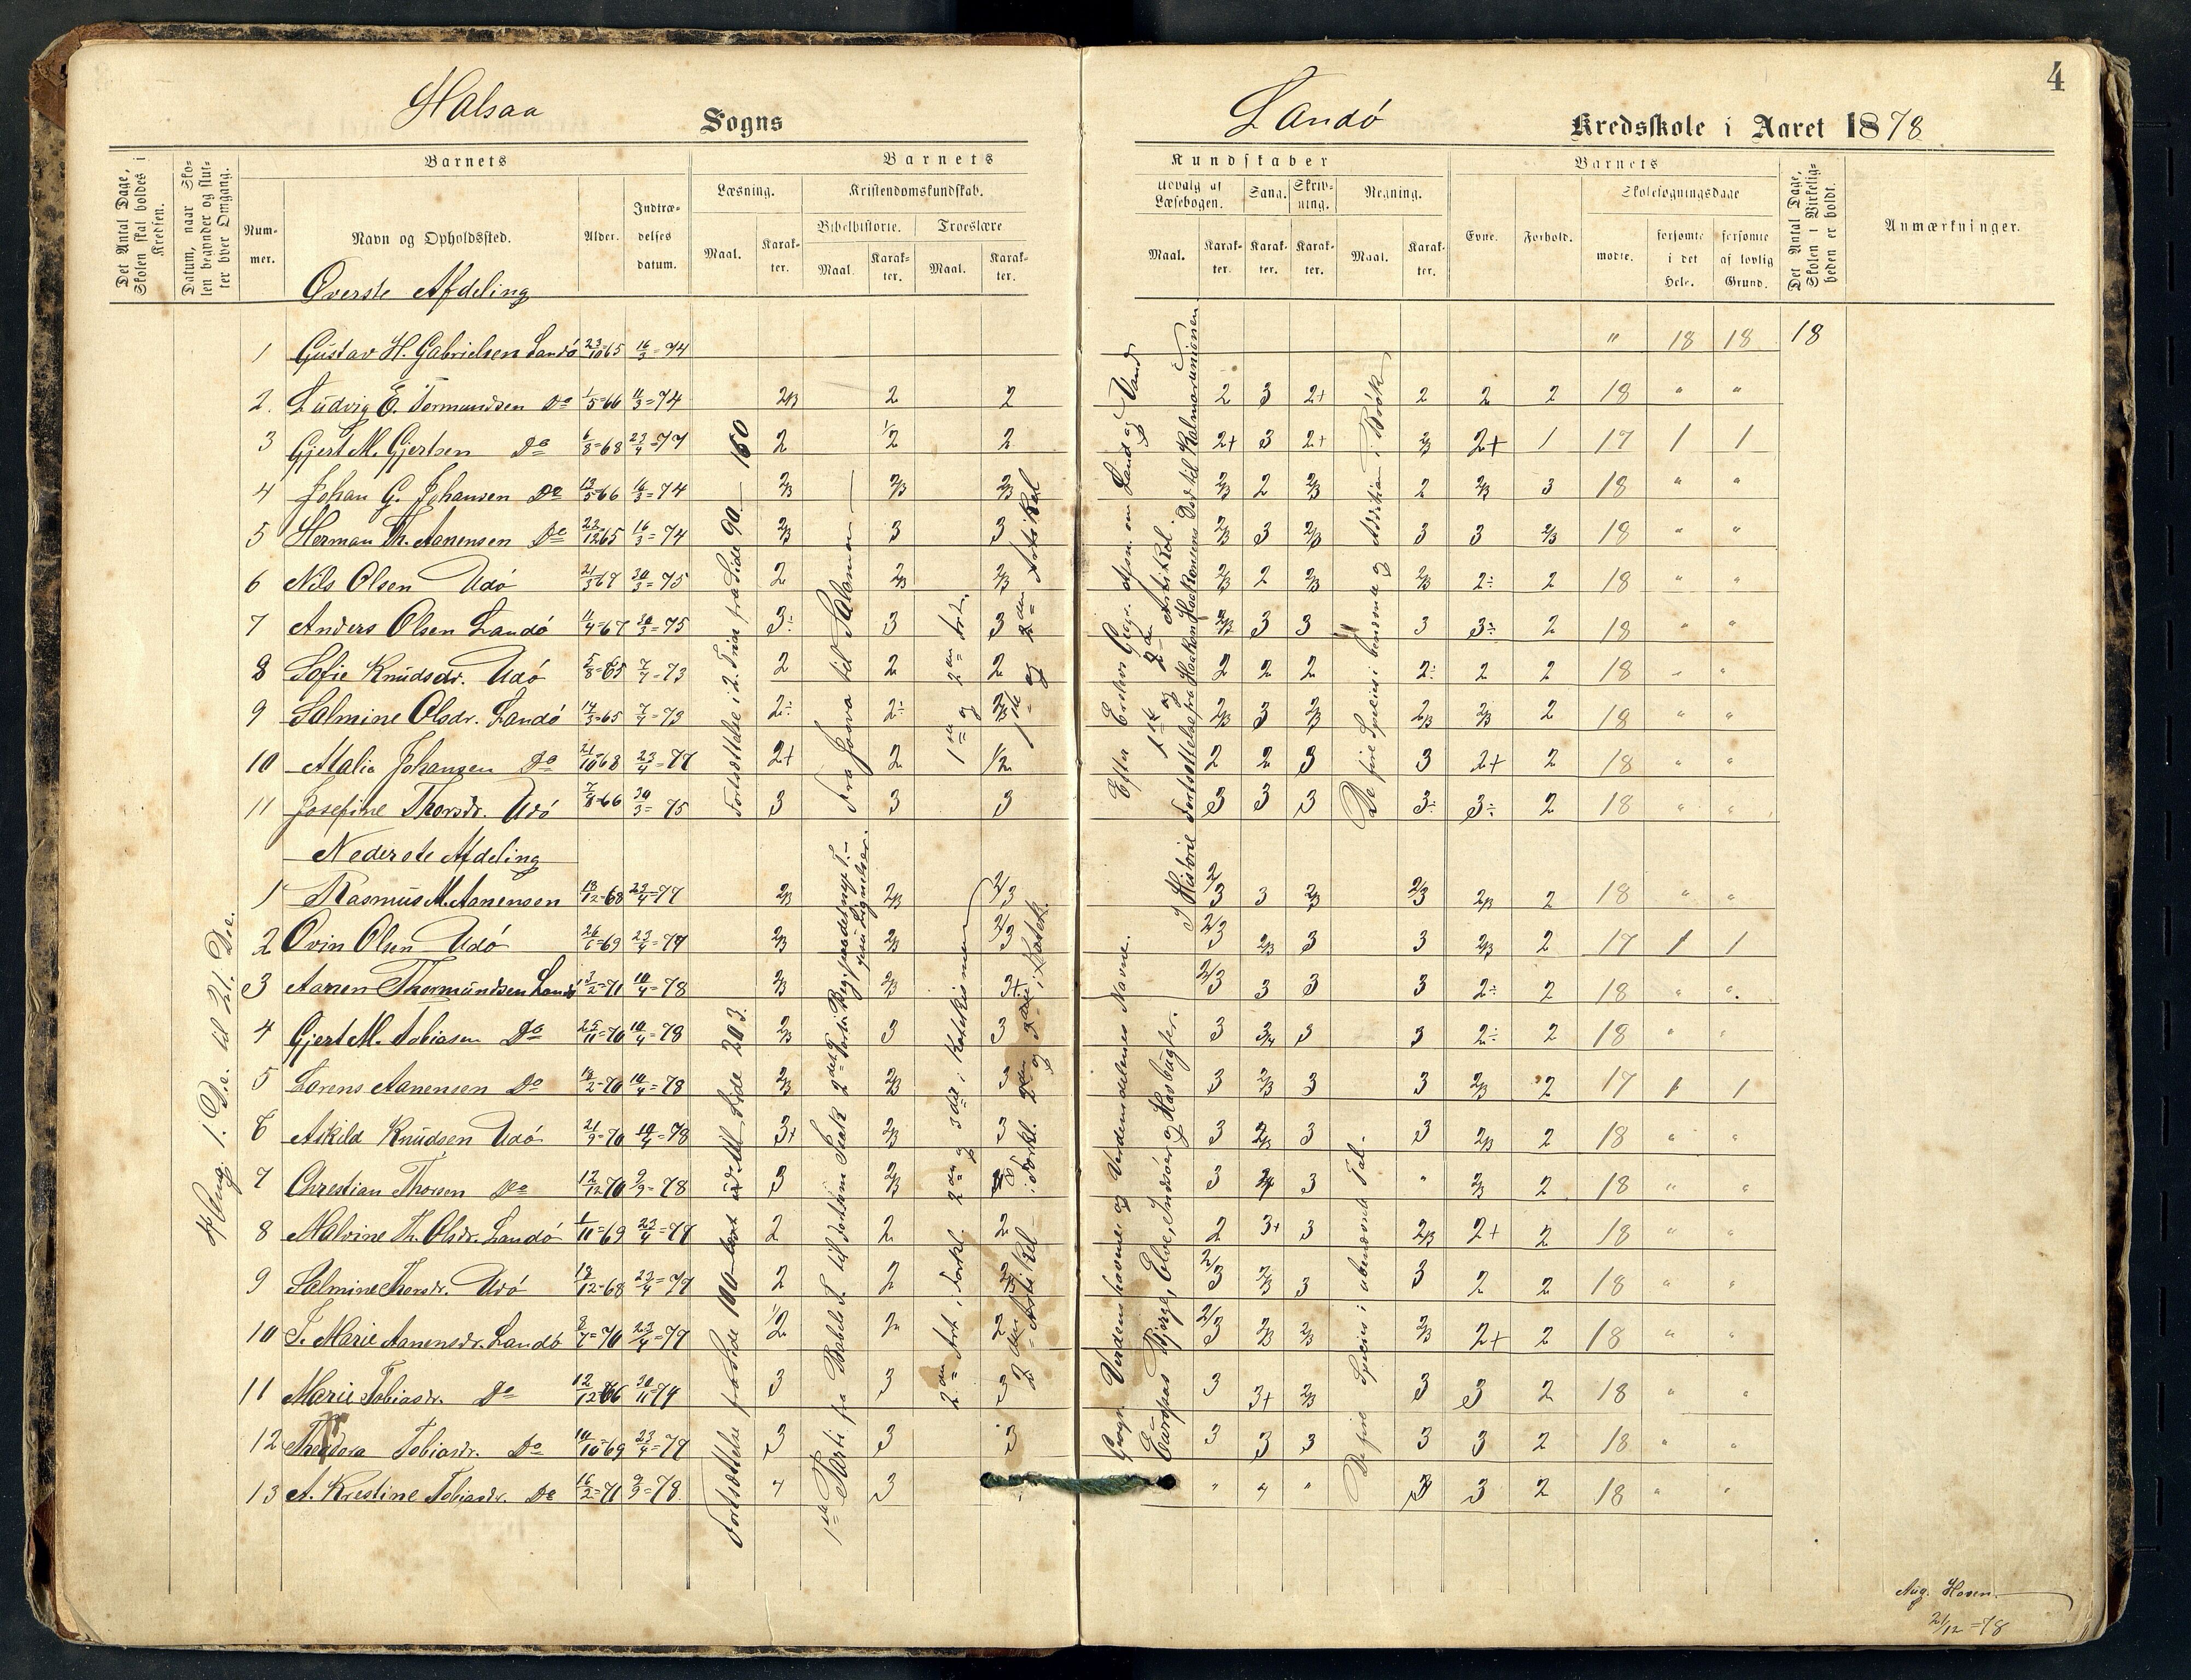 4
Halsaa Sogns
Landö Kredsskole i Aaret 1878
Det Antal Dage, Skolen skal holdes i Kredsen.
Datum, naar Skolen begynder og slutter hver Omgang.
Barnets
Nummer.
Navn og Opholdssted.
Alder.
Indtrædelses datum.
Barnets
Læsning.
Maal.
Karakter.
Kristendomskundskab.
Bibelhistorie.
Maal.
Karakter.
Troeslære
Maal.
Karakter.
Kundskaber
Udvalg af Læsebogen.
Maal.
Karakter.
Sang.
Karakter.
Skrivning.
Karakter.
Regning.
Maal.
Karakter.
Barnets
Evne.
Forhold.
Skolesøgningsdage
mødte.
forsømte i det Hele.
forsømte af lovlig Grund.
Det Antal Dage, Skolen i Virkeligheden er holdt.
Anmærkninger.
Øverste Afdeling
1 Gustav H. Gabrielsen Landö 23/10=65 16/3=74 " 18 18 18
2. Ludvig E. Tormundsen Do 1/5=66 11/3=74 2/3 2 2 2 3 2+ 2 2 2 18 " "
3 Gjert M. Gjertsen Do 6/8=68 23/4=77 2 1/2 2 2+ 3 2+ 2/3 2+ 1 17 1 1
4 Johan G. Johansen Do 13/5=66 16/3=74 2/3 2/3 2/3 2/3 2 2/3 2 2/3 3 18 " "
5 Herman Th. Aanensen Do 22/12=65 16/3=74 2/3 3 3 2/3 3 2/3 3 3 2/3 18 " "
6 Nils Olsen Udö 21/3=67 30/3=75 2 2/3 2/3 2/3 2 2/3 2/3 2÷ 2 18 " "
7 Anders Olsen Landö 11/4=67 30/3=75 3÷ 3 3 2/3 3 3 3 3÷ 2 18 " "
8 Sofie Knudsdr. Udö 5/8=65 7/4=73 2 2 2 2 2 2 2÷ 2 2 18 " "
9 Salmine Olsdr. Landö 14/3=65 7/4=73 2÷ 2÷ 2/3 2/3 3 2/3 2/3 2/3 2 18 " "
10 Malia Johansen Do 21/10=68 23/4=77 2+ 2 1/2 2 2 3 3 2+ 2 18 " "
11 Josefine Thorsdr. Udö 7/8=66 30/3=75 3 3 3 3 3 3 3÷ 3÷ 2 18 " "
Fortsættelse i 2. Trin fra Side 90 — 160
Fra Josva til Salomon
1ste og 2den Art.
1ste og 2den Artikel
Efter Erslevs Geogr. Afsn. om Land og Vand
1ste og 2den Artikel.
I Historie Fortsættelse fra Haakon Haakonsens Død til Kalmarunionen
De fire Species i benævnte og Addition i Brök
Nederste Afdeling
1 Rasmus M. Aanensen 13/12=68 23/4=77 2/3 2/3 2/3 2/3 3 2/3 2/3 2/3 2 18 " "
2 Ovin Olsen Udö 26/6=69 23/4=77 2/3 2/3 2/3 2/3 2/3 3 3 2/3 2 17 1 1
3 Aanen Thormundsen Landö 13/2=71 10/4=78 2/3 2/3 3+ 2/3 3 3 3 2÷ 2 18 " "
4 Gjert M. Tobiasen Do 25/11=70 10/4=78 2/3 3 3 3 3/4 3 3 2÷ 2 18 " "
5 Lorens Aanensen Do 18/2=70 10/4=78 2/3 2/3 3 3 2/3 3 3 2/3 2 17 1 1
6 Askild Knudsen Udö 21/9=70 10/4=78 3+ 2/3 3 3 2/3 3 3 2/3 2 18 " "
7 Christian Thorsen Do 12/12=70 9/9=78 3 2/3 3 3 3 " 2/3 2 18 " "
8 Malvine Th. Olsdr. Landö 1/11=69 23/4=77 2 2 2 2 3+ 3 2/3 2+ 2 18 " "
9 Salmine Thorsdr. Udö 18/12=68 23/4=77 2 2 2/3 2/3 2/3 3 3 2 2 18 " "
10 T. Marie Aanensdr. Landö 8/7=70 23/4=77 1/2 2 2 2/3 2/3 2/3 2/3 2+ 2 18 " "
11 Marie Tobiasdr. Do 12/12=66 30/11=74 3 3 3 3 3+ 2/3 3 3 2 18 " "
12 Theodora Tobiasdr. Do 10/10=69 23/4=77 3 3 3 3 3 3 3 3 2 18 " "
13 A. Kristine Tobiasdr. Do 16/2=71 9/9=78 " 3 " " " 3 3 2 18 " "
4 Omg. 1. Dec. til 21. Dec.
Fortsættelse fra Side 100 til Side 203.
1ste Parti fra Babels T. til Josefs 2det Parti
2den og 3die i Katekismen
2den Art. i Forkl.
2den og 3die i Katek.
2den Artikel i Forkl.
Geogr. Verdenshavene og Verdensdelenes Navne.
Europas Bjerge, Elve, Indsöer og Havbugter.
De fire Species i ubenævnte Tal.
Aug. Hoven.
21/12=78